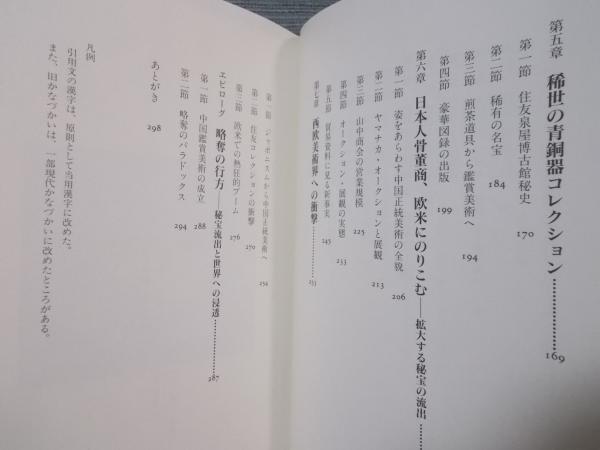 第五章 稀世の青銅器コレクション……………………169
第一節 住友泉屋博古館秘史 170
第二節 稀有の名宝 184
第三節 煎茶道具から鑑賞美術へ 194
第四節 豪華図録の出版 199
第六章 日本人骨董商、欧米にのりこむ──拡大する秘宝の流出……
第一節 姿をあらわす中国正統美術の全貌 206
第二節 ヤマナカ・オークションと展観 213
第三節 山中商会の営業規模 225
第四節 オークション・展観の実態 233
第五節 貿易資料に見る新事実 245
第七章 西欧美術界への衝撃……………………253
第一節 ジャポニスムから中国正統美術へ 254
第二節 住友コレクションの衝撃 270
第三節 欧米での熱狂的ブーム 276
エピローグ 略奪の行方──秘宝流出と世界への浸透……………………287
第一節 中国鑑賞美術の成立 288
第二節 略奪のパラドックス 294
あとがき 298
凡例
引用文の漢字は、原則として当用漢字に改めた。
また、旧かなづかいは、一部現代かなづかいに改めたところがある。